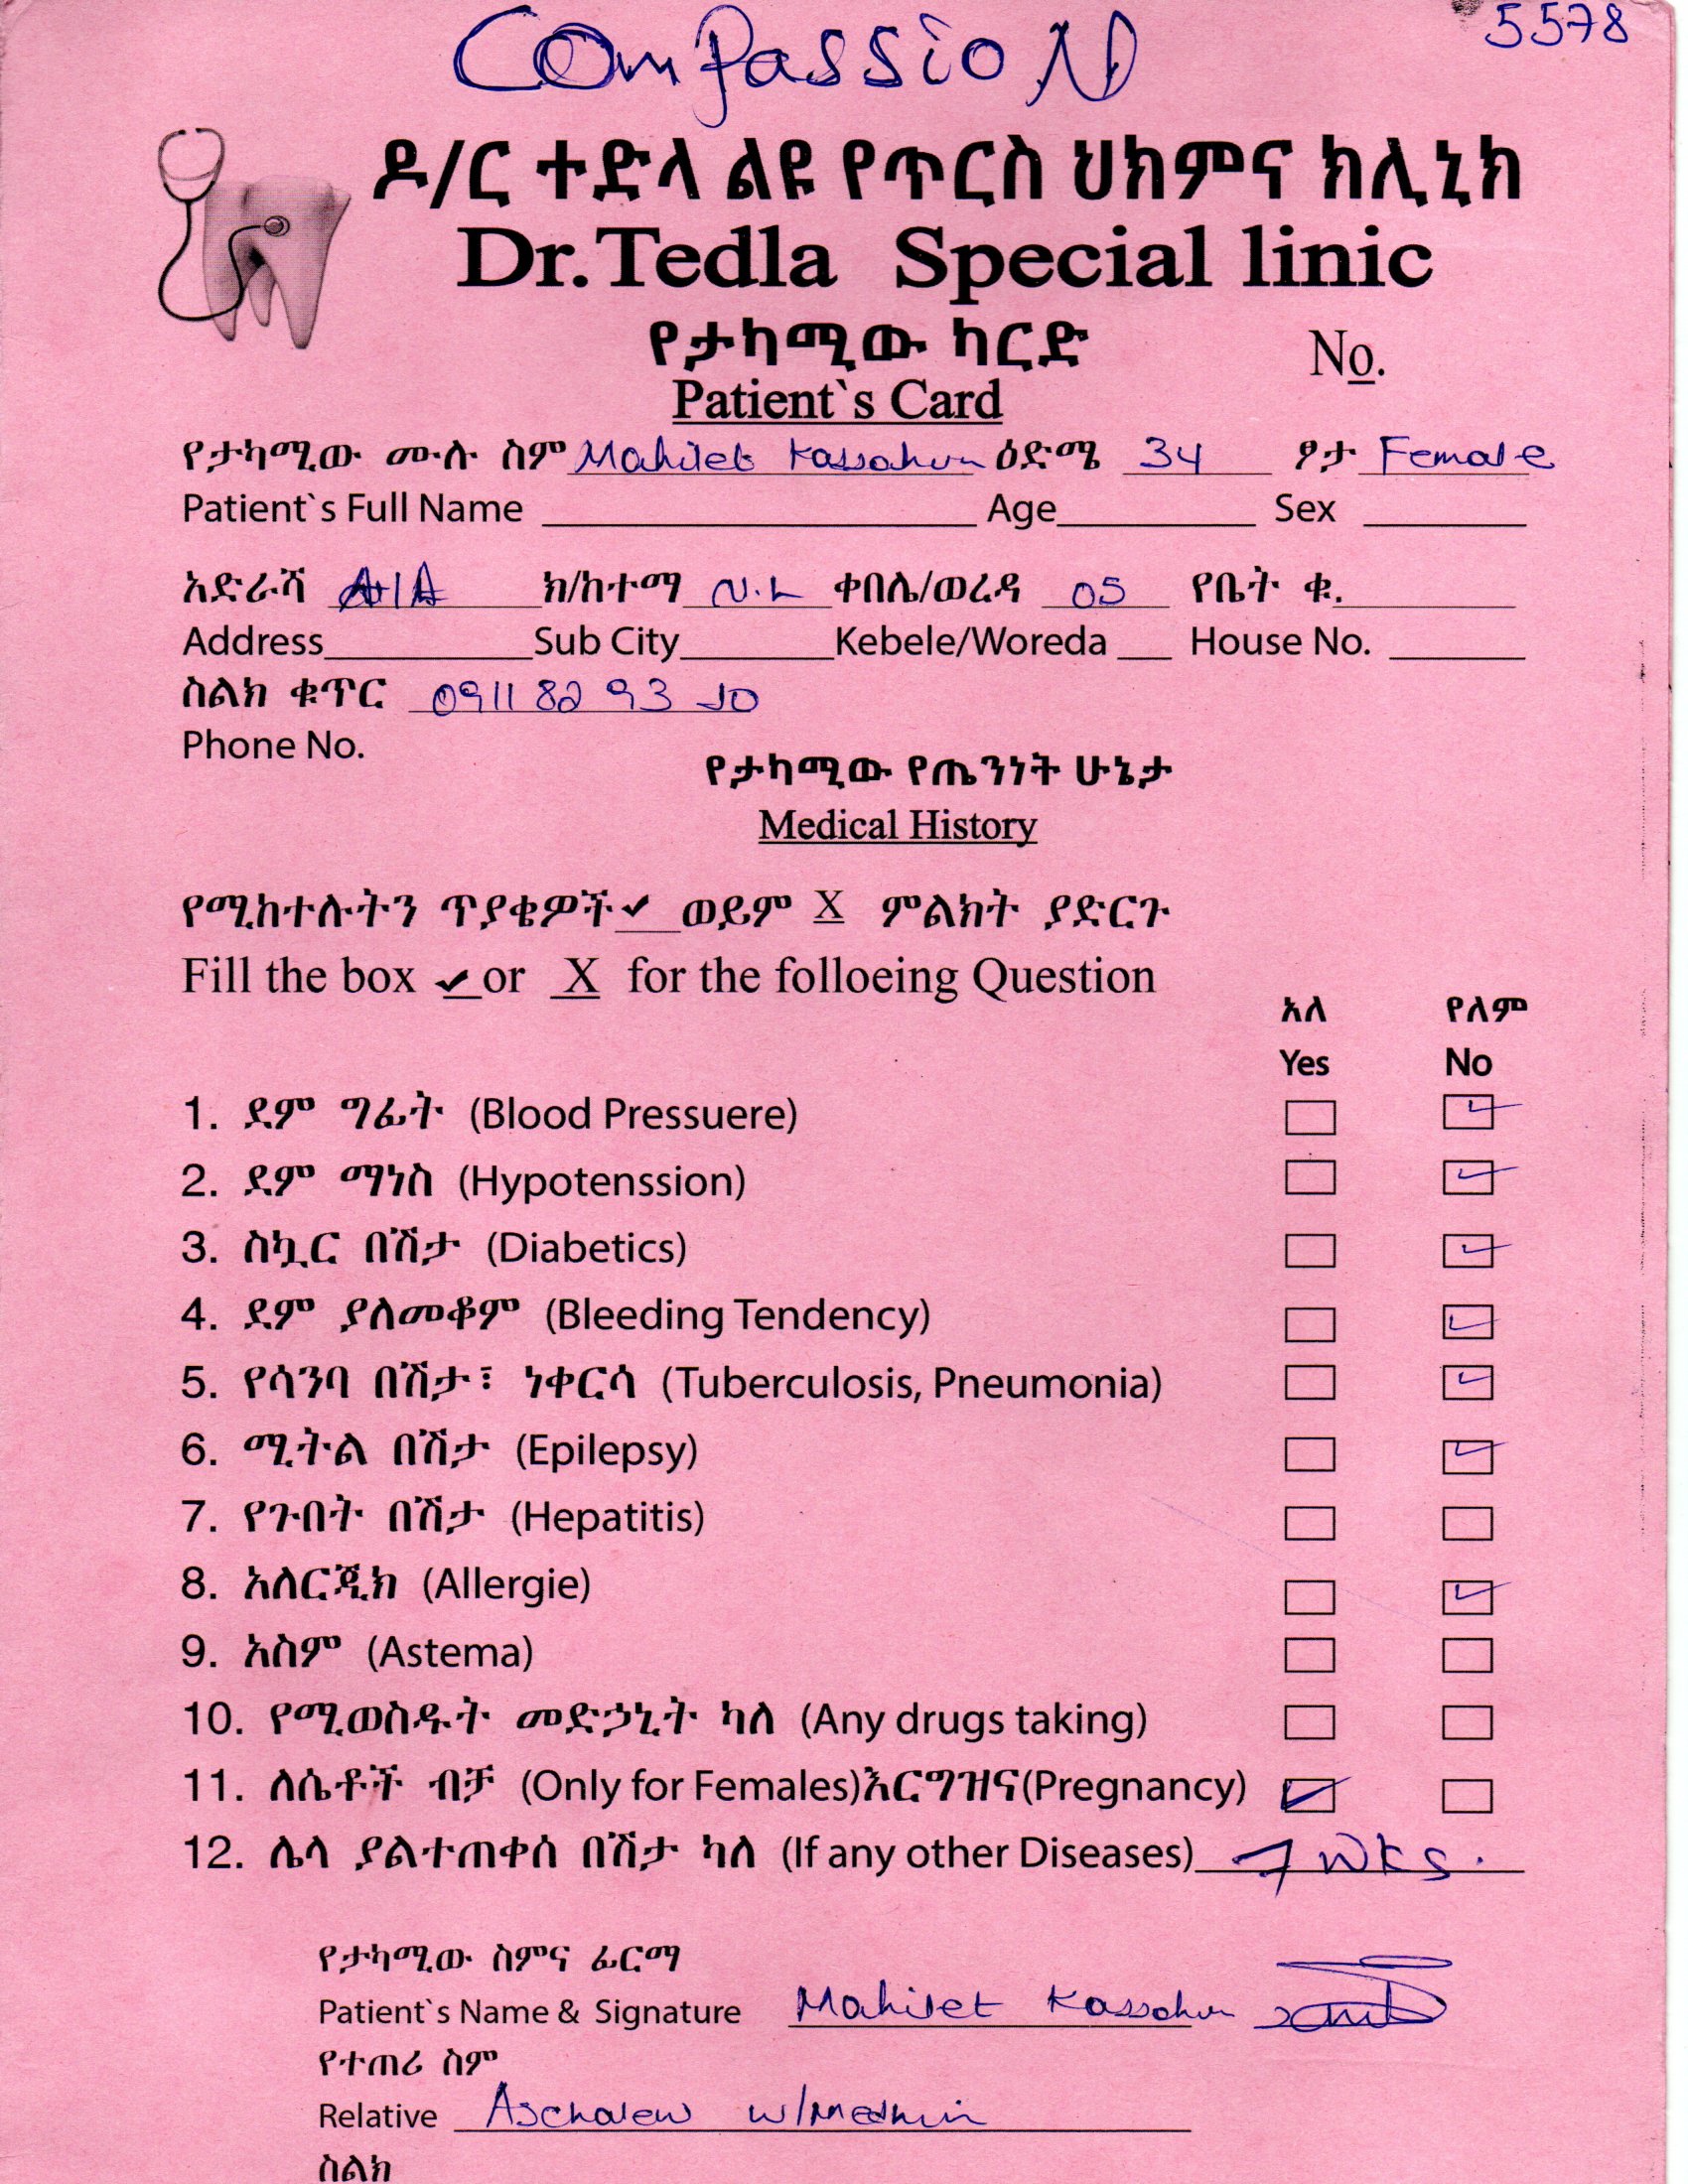 Compassion
5578
ዶ/ር ተድላ ልዩ የጥርስ ህክምና ክሊኒክ
Dr.Tedla Special linic
የታካሚው ካርድ
No.
Patient`s Card
የታካሚው ሙሉ ስም Mahilet Kassahun ዕድሜ 34 ፆታ Female
Patient`s Full Name Age Sex
አድራሻ A/A ክ/ከተማ N.L ቀበሌ/ወረዳ 05 የቤት ቁ.
Address Sub City Kebele/Woreda House No.
ስልክ ቁጥር 0911 82 93
Phone No.
የታካሚው የጤንነት ሁኔታ
Medical History
የሚከተሉትን ጥያቄዎች ✓ ወይም X ምልክት ያድርጉ
Fill the box ✓ or X for the folloeing Question
አለ የለም
Yes No
1. ደም ግፊት (Blood Pressuere) ✓
2. ደም ማነስ (Hypotenssion) ✓
3. ስኳር በሽታ (Diabetics) ✓
4. ደም ያለመቆም (Bleeding Tendency) ✓
5. የሳንባ በሽታ፣ ነቀርሳ (Tuberculosis, Pneumonia) ✓
6. ሚትል በሽታ (Epilepsy) ✓
7. የጉበት በሽታ (Hepatitis)
8. አለርጂክ (Allergie) ✓
9. አስም (Astema)
10. የሚወስዱት መድኃኒት ካለ (Any drugs taking)
11. ለሴቶች ብቻ (Only for Females)እርግዝና(Pregnancy) ✓
12. ሌላ ያልተጠቀሰ በሽታ ካለ (If any other Diseases) 7 wks.
የታካሚው ስምና ፊርማ
Patient`s Name & Signature Mahilet Kassahun
የተጠሪ ስም
Relative Aschalew w/Medhin
ስልክ